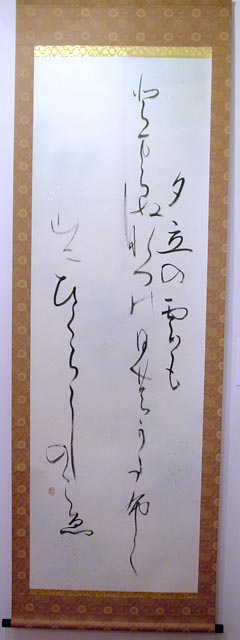 夕立の雲も
とまらぬ那つの日のかたふく
山に
ひくらしのこゑ